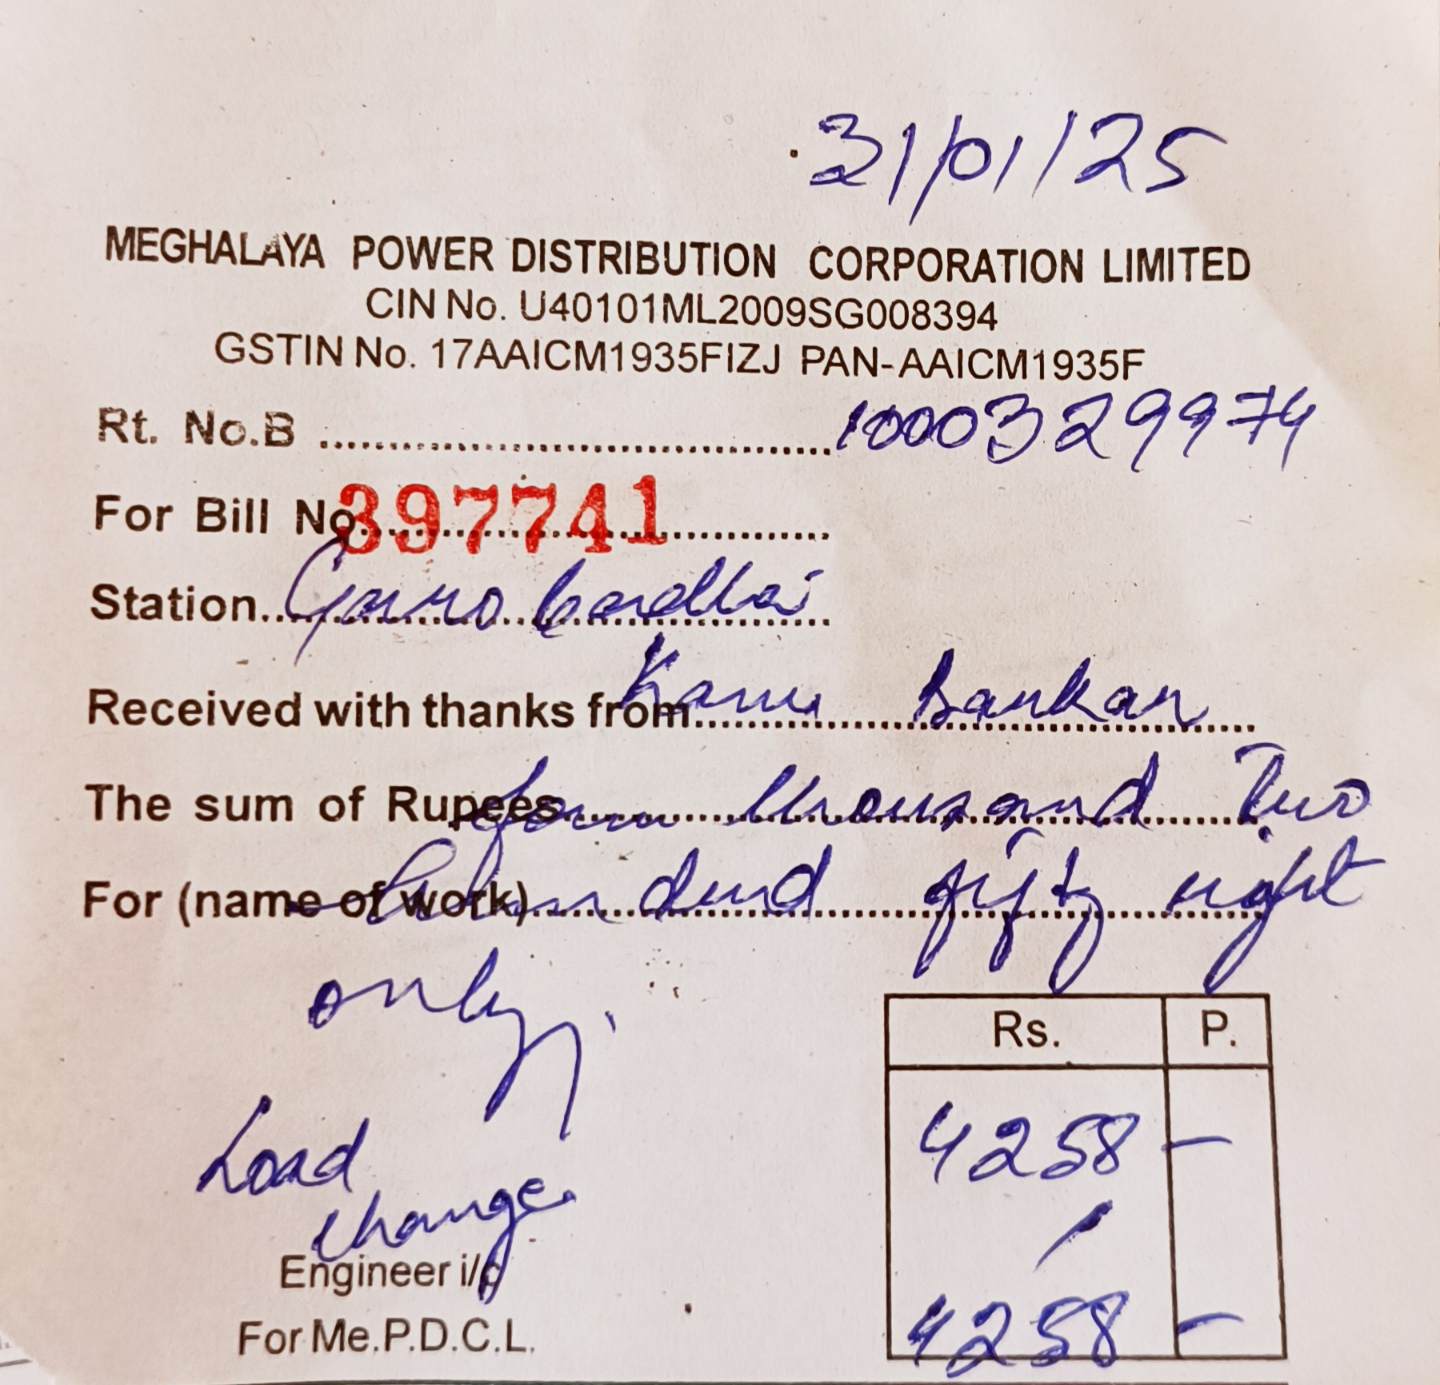 31/01/25
MEGHALAYA POWER DISTRIBUTION CORPORATION LIMITED
CIN No. U40101ML2009SG008394
GSTIN No. 17AAICM1935FIZJ PAN-AAICM1935F
Rt. No.B .......... 1000329974
For Bill No. 397741
Station.......... Garobadha
Received with thanks from.......... Sarkar
The sum of Rupees.......... four thousand Two
For (name of work).......... hundred fifty eight
only
Load
change
Engineer i/c
For Me.P.D.C.L.
Rs. P.
4258 –
4258 –